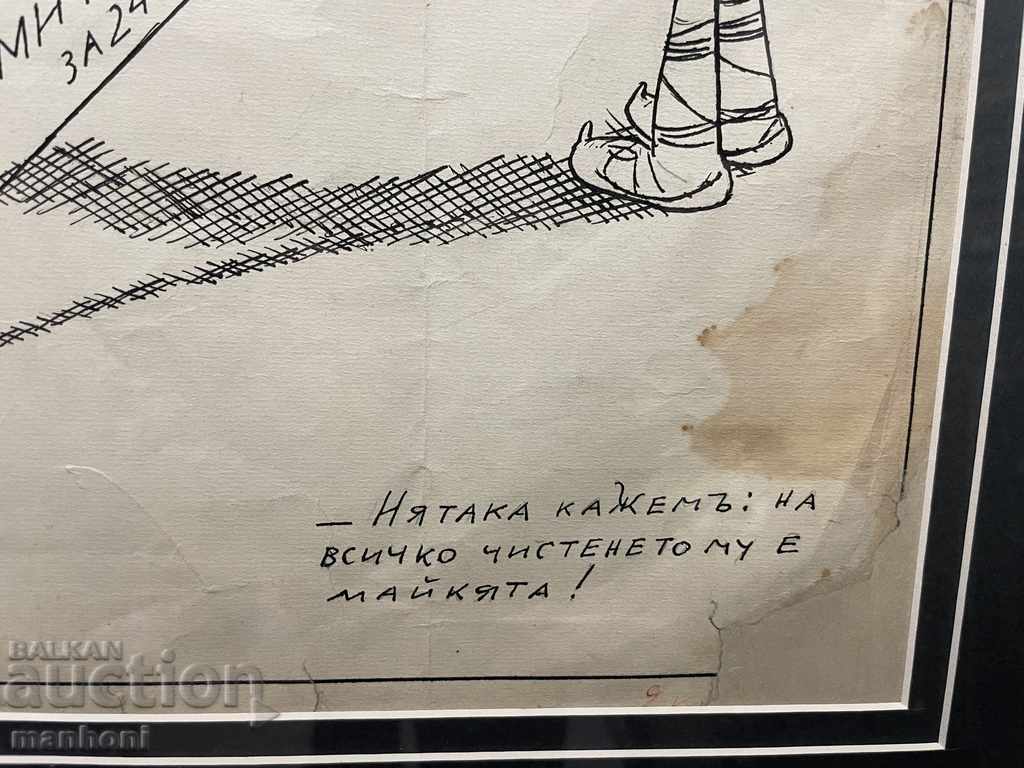 ЗА 24
— НЯТАКА КАЖЕМЪ: НА
ВСИЧКО ЧИСТЕНЕТО МУ Е
МАЙКЯТА!
BALKAN
auction
manhoni